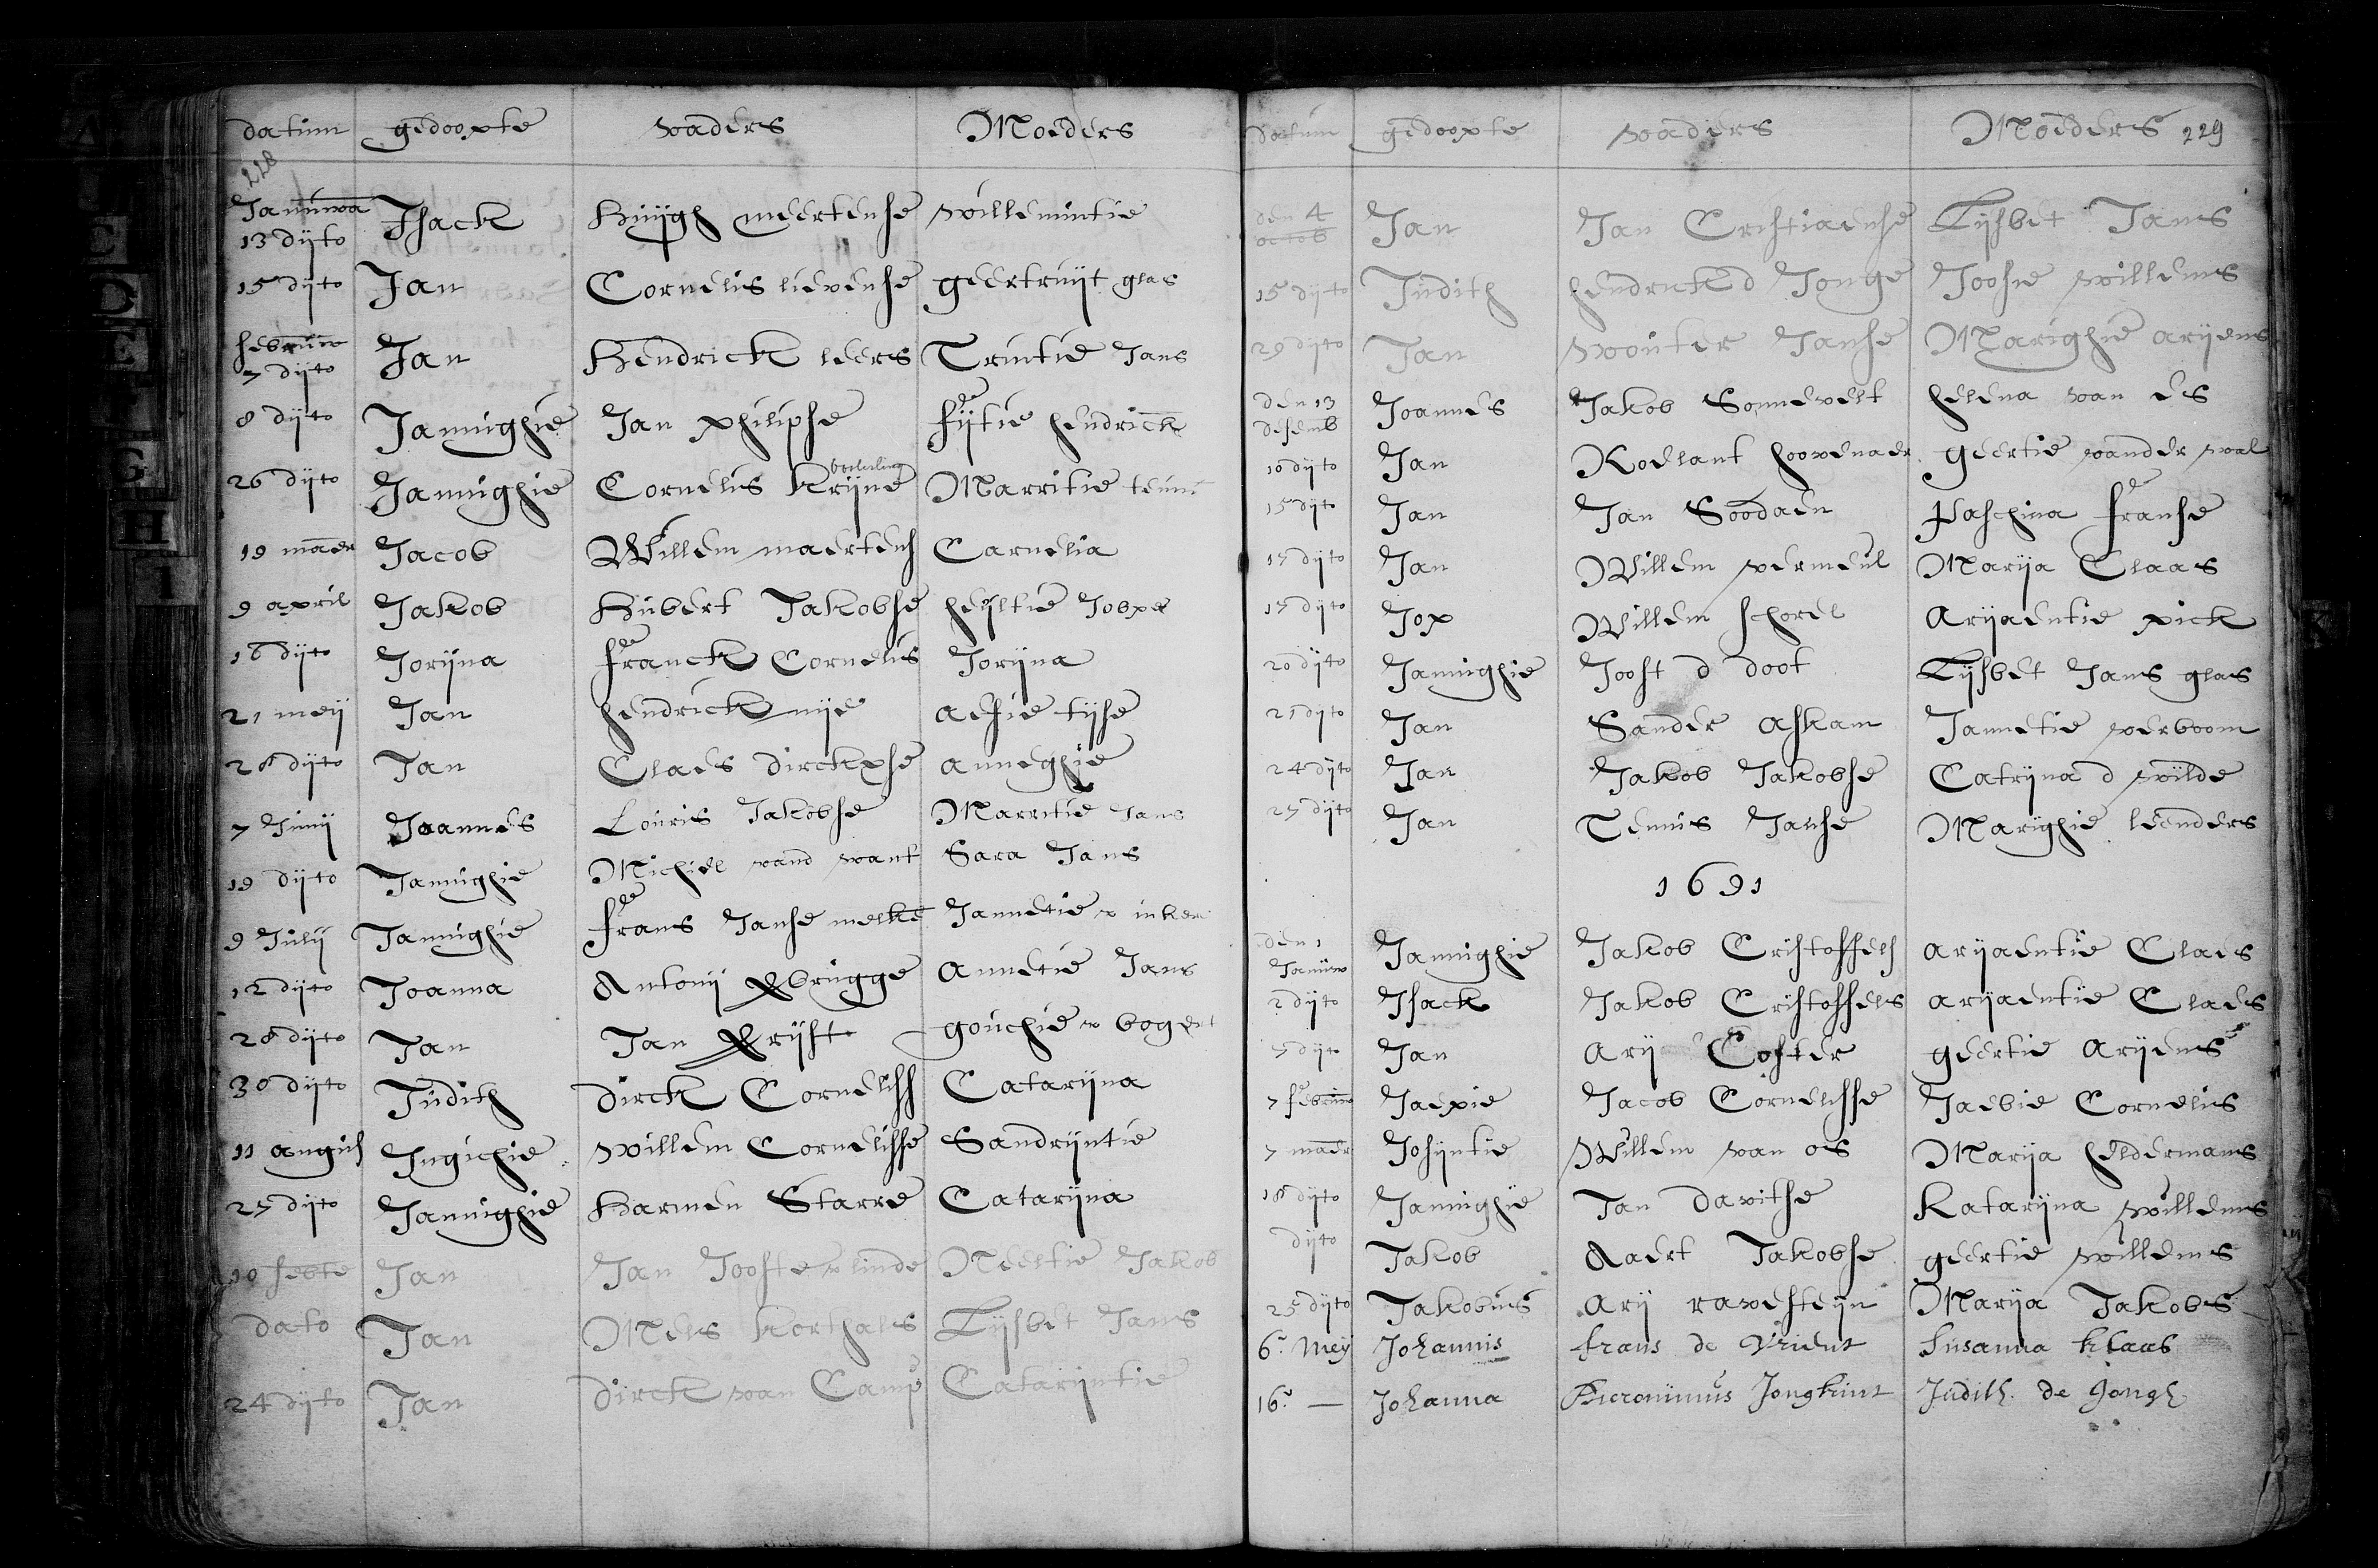 datum gedoopte vaders Moeders
228
Januwa
13 dijto Jsack Huijgh meertense willemintie
15 dijto Jan Cornelis lievense geertruijt glas
februw
7 dijto Jan Hendrick leers Trintie Jans
8 dijto Jannighie Jan philipse fijtie hendrick
26 dijto Jannighie Cornelis Krijne Marritie teuni
19 maer Jacob Willem maertens Carnelia
9 april Jakob Hubert Jakobse heijltie Jobpe
16 dijto Jorijna franck Cornelis Jorijna
21 meij Jan hendrick nije aehie tijse
28 dijto Jan Claes dirckxse anneghie
7 Junij Joannes Louris Jakobse Marritie Jans
19 dijto Jannighie Michiel vand want Sara Jans
9 Julij Jannighie frans Janse melke Jannetie v inker
12 dijto Joanna Antonij Verbrugge annetie Jans
28 dijto Jan Jan Verrijst gouchie v boger
30 dijto Judith dirck Corneliss Catarijna
11 augus Jngichie willem Cornelisse Sandrijntie
27 dijto Jannighie Harmen Starre Catarijna
10 sebte Jan Jan Jooste v linde Neeltie Jakob
dato Jan Mels korthals Lijsbet Jans
24 dijto Jan dirck van Camp Catarijntie
datum gedoopte vaders Moeders 229
den 4
octob Jan Jan Cristiaense Lijsbet Jans
15 dijto Judith hendrick d Jonge Joosie willems
29 dijto Jan wouter Janse Marighie arijens
den 13
desemb Joannes Jakob Sonnevelt helena van es
10 dijto Jan Roelant hoovenaer geertie vander wal
15 dijt Jan Jan Soodaen paschina franse
17 dijto Jan Willem vermeul Marija Claas
17 dijto Jop Willem schorel Arijaentie pick
20 dijto Jannighie Joost d doot Lijsbet Jans glas
21 dijto Jan Sander askam Jannetie verboom
24 dijto Jan Jakob Jakobse Catrijna d wilde
27 dijto Jan Teunis Janse Marijghie leenders
1691
den 1
Januw Jannighie Jakob Cristoffels arijaentie Claes
2 dijto Jsack Jakob Cristoffels arijaentie Claes
5 dijto Jan arij Coster geertie Arijens
7 februw Jaepie Jacob Cornelisse Jaebie Cornelis
7 maer Josijntie Willem van os Marija heldermans
18 dijto Jannighie Jan davitse Katarijna willems
dijto Jakob Aaert Jakobse geertie willems
25 dijto Jakobus Arij ravesteijn Marija Jakobs
6. Meij Johannis frans de Vrient Susanna klaas
16. — Johanna Hieronimus Jongkint Judith de Jongh